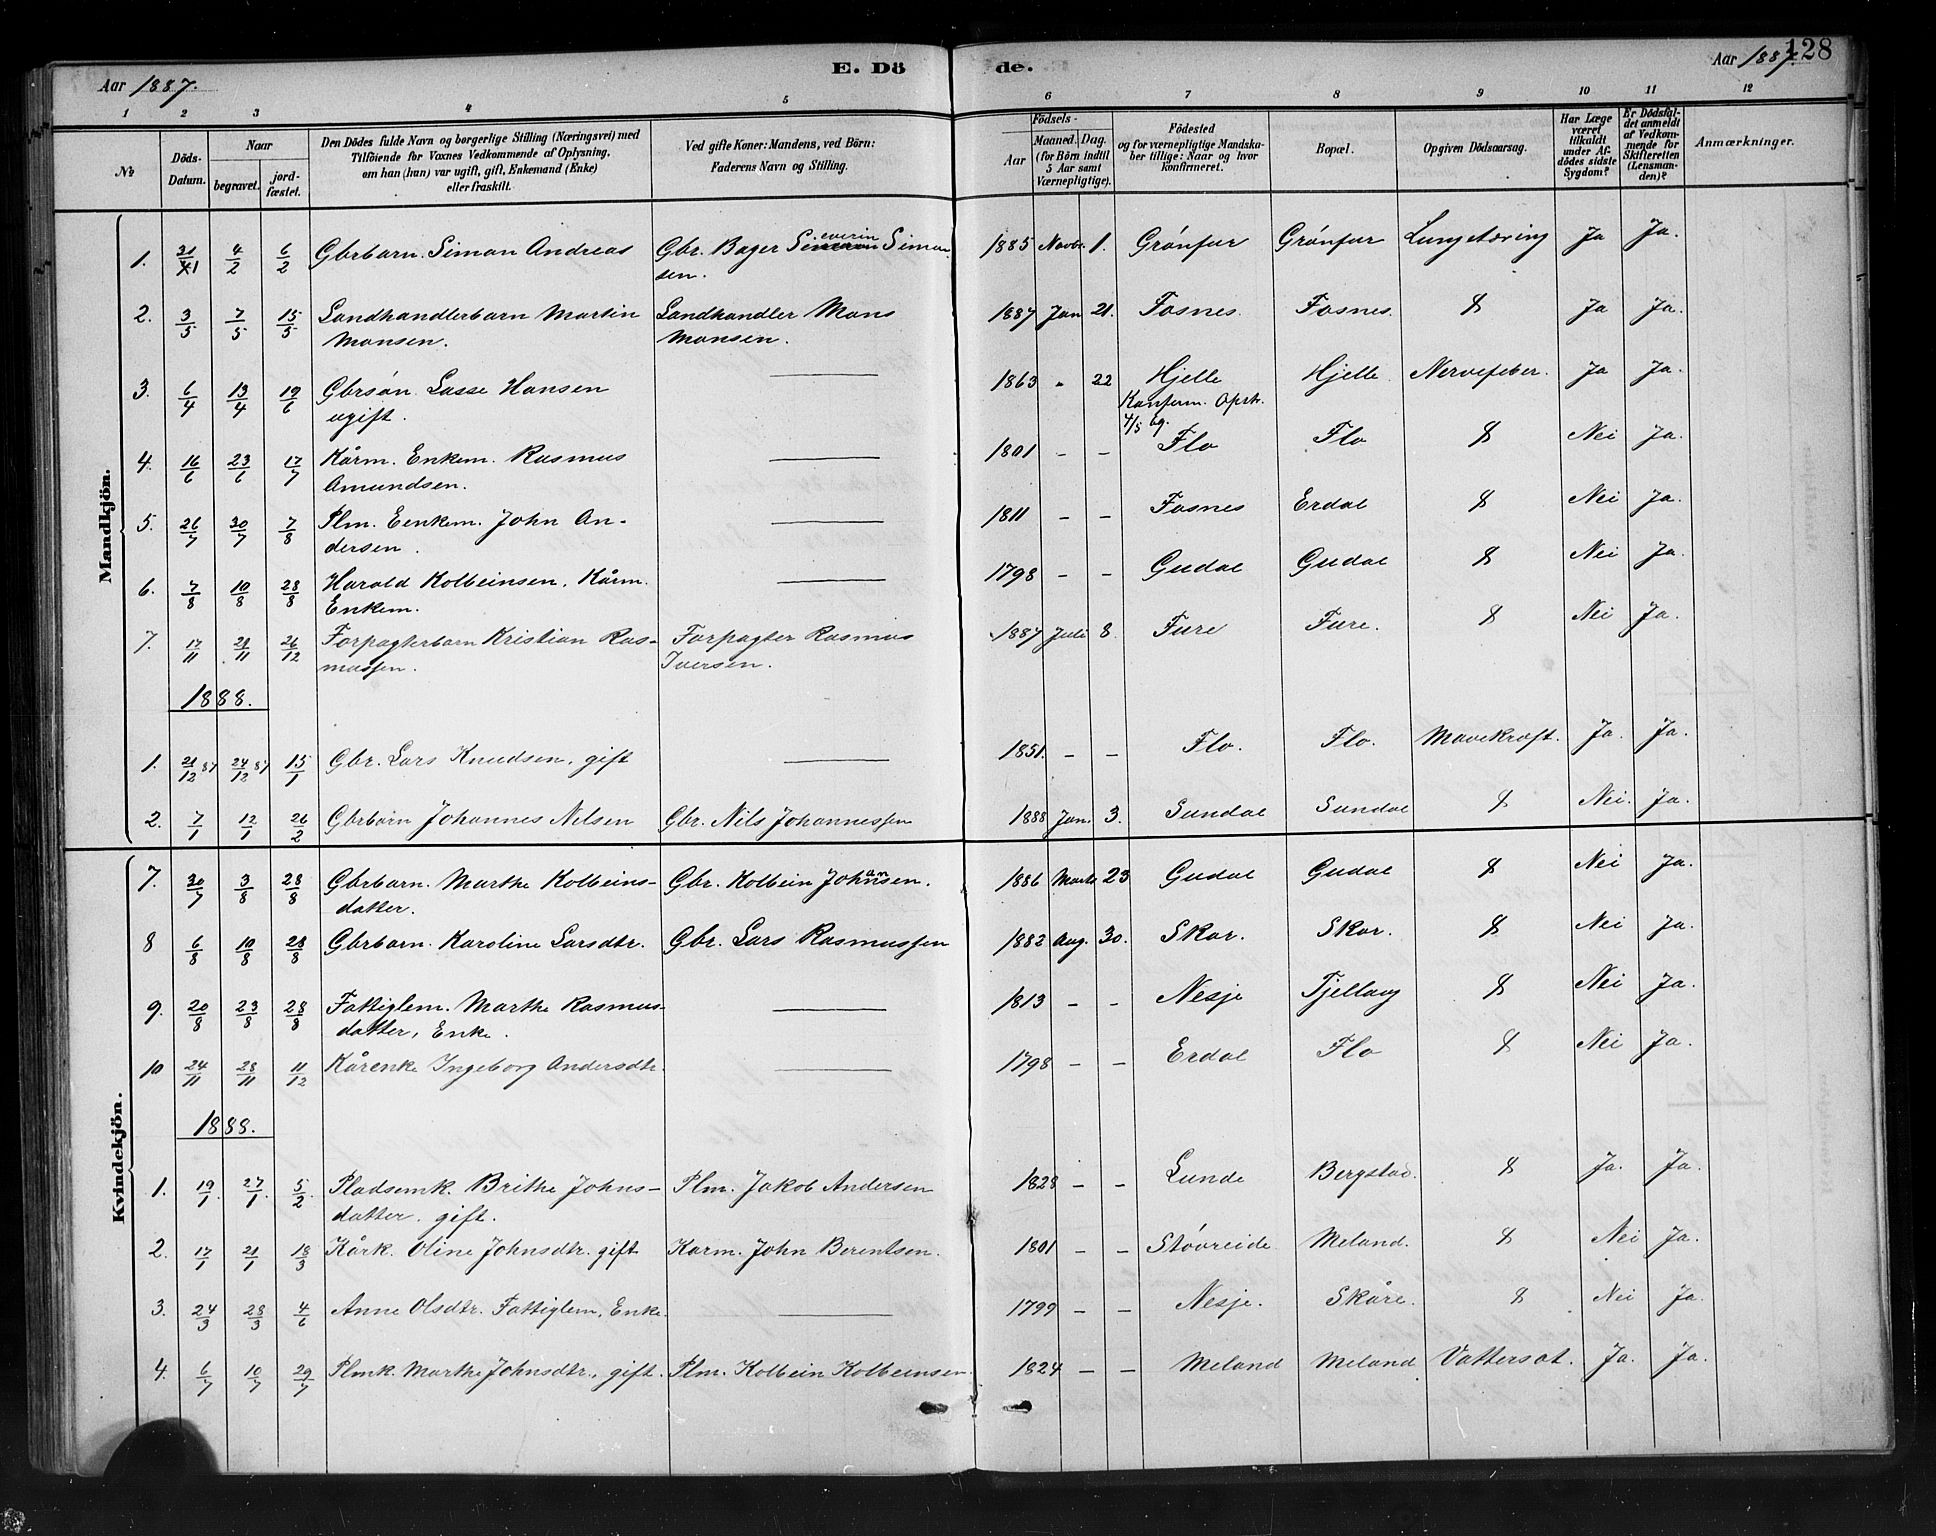 Aar 1887.
E. Dö
de.
Aar 1887.
128
1 2 3 4 5 6 7 8 9 10 11 12
№
Döds-Datum.
Naar
begravet.
jord-fæstet.
Den Dödes fulde Navn og borgerlige Stilling (Næringsvei) med
Tilföiende for Voxnes Vedkommende af Oplysning,
om han (hun) var ugift, gift, Enkemand (Enke)
eller fraskilt.
Ved gifte Koner: Mandens, ved Börn:
Faderens Navn og Stilling.
Födsels-
Aar
Maaned. Dag.
(for Börn indtil
5 Aar samt
Værnepligtige).
Födested
og for værnepligtige Mandska-
ber tillige: Naar og hvor
konfirmeret.
Bopæl.
Opgiven Dödsaarsag.
Har Læge
været
tilkaldt
under Af-
dödes sidste
Sygdom?
Er Dödsfal-
det anmeldt
af Vedkom-
mende for
Skifteretten
(Lensman-
den)?
Anmærkninger.
Mandkjön.
1. 31/1 4/2 6/2 Gbrbarn. Simon Andreas Gbr. Bager Severin Simon- 1885 Novbr. 1. Grönfur Grönfur Ja Ja.
sen.
2. 3/5 7/5 15/5 Landhandlerbarn Martin Landhandler Mons 1887 Jan 21. Fosnes. Fosnes. Ja Ja.
Monsen. Monsen.
3. 6/4 13/4 19/6 Gbrsön Lasse Hansen 1863 " 22 Hjelle Hjelle Nervefeber. Ja Ja.
ugift. Konferm. Opstr.
4. 16/6 23/6 17/7 Kårm. Enkem. Rasmus 1801 - - Flo Flo Nei Ja.
Amundsen.
5. 26/7 30/7 7/8 Plm. Eenkem. John An- 1811 - - Fosnes Erdal Nei Ja.
dersen.
6. 7/8 10/8 28/8 Harald Kolbeinsen, Kårm. 1798 - - Gudal Gudal Nei Ja.
Enkem.
7. 17/11 21/11 26/12 Forpagterbarn Kristian Ras- Forpagter Rasmus 1887 Juli 8. Fure Fure. Nei Ja.
mussen. Iversen.
1888.
1. 21/12 87 24/12 87 15/1 Gbr. Lars Knudsen, gift 1851. - - Flo. Flo. Mavekræft. Ja. Ja.
2. 7/1 12/1 26/2 Gbrbarn Johannes Nilsen Gbr. Nils Johannessen 1888 Jan. 3. Sundal Sundal Nei. Ja.
Kvindekjön.
7. 30/7 3/8 28/8 Gbrbarn. Marthe Kolbeins- Gbr. Kolbein Johansen. 1886 Marts 23 Gudal Gudal Nei Ja.
datter.
8 6/8 10/8 28/8 Gbrbarn. Karoline Larsdtr. Gbr. Lars Rasmussen 1882 Aug. 30. Skar. Skar. Nei Ja.
9. 20/8 23/8 28/8 Fattiglem. Marthe Rasmus- 1813 - - Nesje Tjellaug Nei Ja.
datter, Enke.
10 24/11 28/11 11/12 Kårenke Ingeborg Andersdtr. 1798 - - Erdal Flo Nei Ja.
1888.
1. 19/1 27/1 5/2 Pladsemk. Brithe Johns- Plm. Jakob Andersen 1828 - - Lunde Bergstad. Ja. Ja.
datter, gift.
2. 17/1 21/1 18/3 Kårk. Oline Johnsdtr. gift Karm. John Berentsen. 1801 - - Stövreide Meland. Nei Ja.
3. 24/3 28/3 4/6 Anne Olsdtr. Fattiglem, Enke. 1799 - - Nesje. Skåre. Nei Ja.
4. 6/7 10/7 29/7 Plmk. Marthe Johnsdtr., gift. Plm. Kolbein Kolbeinsen. 1824 - - Meland Meland Vattersot. Ja. Ja.